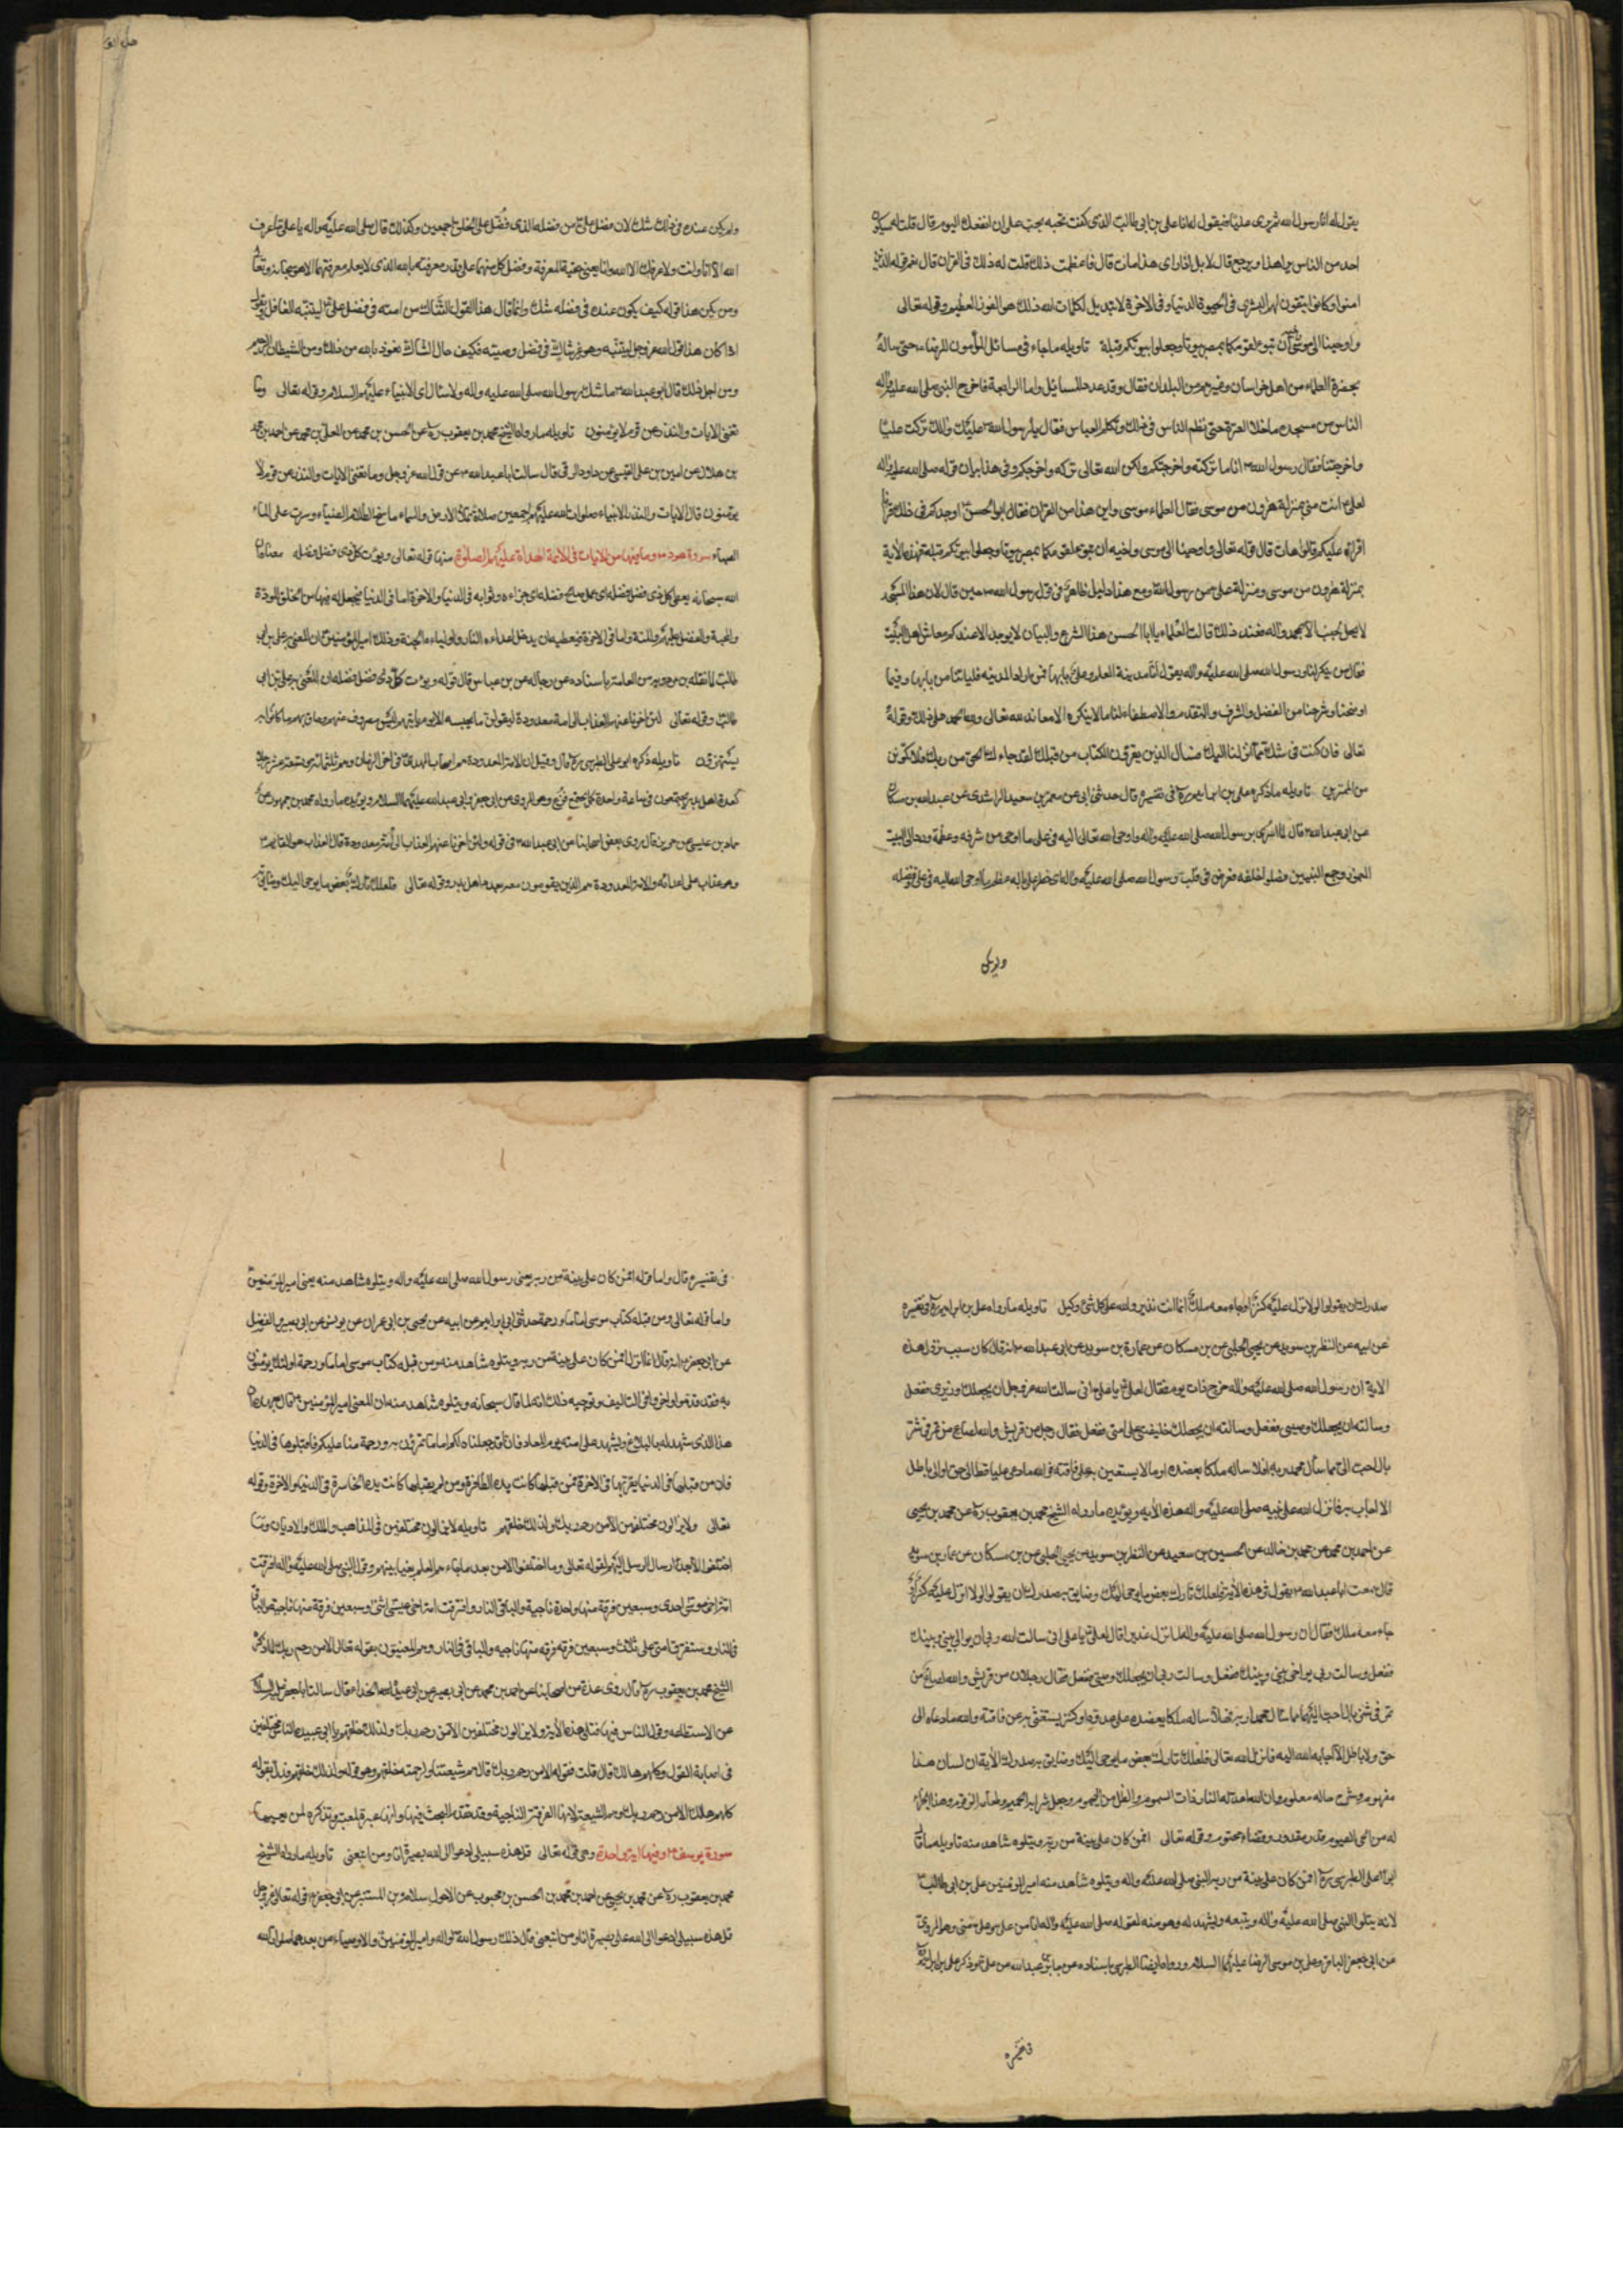 يقول له انا رسول الله ثم يرى عليا فيقول له انا علي بن ابي طالب الذي كنت تحبه يجب على ان انفعك اليوم قال قلت له
احد من الناس يرا هذا ويرجع قال لا بل اذا راى هذا مات قال فاعظمت ذلك قلت له ذلك في القران قال نعم قوله الذين
امنوا وكانوا يتقون لهم البشرى في الحيوة الدنيا وفي الاخرة لا تبديل لكلمات الله ذلك هو الفوز العظيم وقوله تعالى
واوحينا الى موسى ان تبوء لقومكما بمصر بيوتا واجعلوا بيوتكم قبلة تاويله ما جاء في مسائل المأمون للرضاء حتى ساله
بحضرة العلماء من اهل خراسان وغيرهم من البلدان فقال وقد عدد المسائل واما الرابعة فاخرج النبي صلى الله عليه واله
الناس من مسجده ما خلا العترة حتى تظلم الناس في ذلك وتكلم العباس فقال يا رسول الله تركت عليا
واخرجتنا فقال رسول الله ما انا تركته واخرجتكم ولكن الله تعالى تركه واخرجكم وفي هذا بيان قوله صلى الله عليه واله
لعلي انت مني بمنزلة هرون من موسى فقال العلماء واين هذا من القران فقال ابو الحسن اوجدكم في ذلك قرانا
اقراه عليكم قالوا هات قال قوله تعالى واوحينا الى موسى واخيه ان تبوء لقومكما بمصر بيوتا واجعلوا بيوتكم قبلة فهذه الاية
بمنزلة هرون من موسى ومنزلة علي من رسول الله ومع هذا دليل ظاهر في قول رسول الله حين قال لان هذا المسجد
لا يحل لجنب الا لمحمد واله فعند ذلك قالت العلماء يا ابا الحسن هذا الشرع والبيان لا يوجد الا عندكم معاشر اهل البيت
فقال من ينكر لنا ورسول الله صلى الله عليه واله يقول انا مدينة العلم وعلي بابها فمن اراد المدينة فلياتها من بابها وفيما
اوضحنا وشرحنا من الفضل والشرف والتقدمة والاصطفاء لنا ما لا ينكره الا معاند لله تعالى وله الحمد على ذلك وقوله
تعالى فان كنت في شك مما انزلنا اليك فسال الذين يقرؤن الكتاب من قبلك لقد جاءك الحق من ربك فلا تكونن
من الممترين تاويله ما ذكره علي بن ابراهيم في تفسيره قال حدثني ابي عن عمرو بن سعيد الراشدي عن عبد الله بن مسكان
عن ابي عبد الله قال لما اسري برسول الله صلى الله عليه واله واوحى الله تعالى اليه في علي ما اوحى من شرفه وعظمه ورد الى البيت
المعمور وجمع النبيين فصلوا خلفه عرض في قلب رسول الله صلى الله عليه واله اي خطر على باله عظم ما اوحى الله اليه في علي وفضله
ولم يكن
ولم يكن عنده في ذلك شك لان فضل علي من فضله الذي فضل على الخلق اجمعين وكذلك قال صلى الله عليه واله يا علي ما عرف
الله الا انا وانت ولا عرفك الا الله وانا يعني حقيقة المعرفة وفضل كل منهما على قدر معرفته بالله الذي لا يعلم معرفتهما الا هو سبحانه وتعالى
ومن يكن هذا قوله كيف يكون عنده في فضله شك وانما قال هذا القول للشاك من امته في فضل علي ليتنبه الغافل
اذا كان هذا قول الله عز وجل لنبيه وهو غير شاك في فضل وصيه فكيف حال الشاك نعوذ بالله من ذلك ومن الشيطان الرجيم
ومن اجل ذلك قال ابو عبد الله ما شك رسول الله صلى الله عليه واله ولا سال اي الانبياء عليهم السلام وقوله تعالى وما
تغني الايات والنذر عن قوم لا يؤمنون تاويله ما رواه الشيخ محمد بن يعقوب ره عن الحسين بن محمد عن المعلى بن محمد عن احمد بن محمد
بن هلال عن امية بن علي القيسي عن داود الرقي قال سالت ابا عبد الله عن قول الله عز وجل وما تغني الايات والنذر عن قوم لا
يؤمنون قال الايات والنذر الانبياء صلوات الله عليهم اجمعين صلاة تملأ الارض والسماء ما نسخ الظلام الضياء وسرت على الماء
الصباء سورة هود وما فيها من الايات في الائمة الهداة عليهم الصلوة منها قوله تعالى ويؤت كل ذي فضل فضله معناه ان
الله سبحانه يعطي كل ذي فضل فضله اي عمل صالح فضله اي جزاءه وثوابه في الدنيا والاخرة اما في الدنيا فيجعل له فيها من الخلق المودة
والمحبة والفضل عليهم والمنة واما في الاخرة فيعطيه ان يدخل اعداءه النار واولياءه الجنة وذلك امير المؤمنين لان المعني به علي بن ابي
طالب لما نقله بن مردويه من العامة باسناده عن رجاله عن بن عباس قال قوله ويؤت كل ذي فضل فضله ان المعني به علي بن ابي
طالب وقوله تعالى لئن اخرنا عنهم العذاب الى امة معدودة ليقولن ما يحبسه الا يوم ياتيهم ليس مصروفا عنهم وحاق بهم ما كانوا به
يستهزؤن تاويله ذكره ابو علي الطبرسي ره قال وقيل ان الامة المعدودة هم اصحاب المهدي في اخر الزمان وهم ثلثمائة وبضعة عشر رجلا
كعدة اهل بدر يجتمعون في ساعة واحدة كما يجتمع قزع وهو المروي عن ابي جعفر وابي عبد الله عليهما السلام ويؤيده ما رواه محمد بن جمهور عن
حماد بن عيسى عن حريز قال روى بعض اصحابنا عن ابي عبد الله في قوله ولئن اخرنا عنهم العذاب الى امة معدودة قال العذاب هو القائم
وهو عذاب على اعدائه والامة المعدودة هم الذين يقومون معه بعدد اهل بدر وقوله تعالى فلعلك تارك بعض ما يوحى اليك وضائق به
صدرك ان يقولوا لولا انزل عليه كنز او جاء معه ملك انما انت نذير والله على كل شئ وكيل تاويله ما رواه علي بن ابراهيم ره في تفسيره
عن ابيه عن النظر بن سويد عن يحيى الحلبي عن بن مسكان عن عمارة بن سويد عن ابي عبد الله انه قال كان سبب نزول هذه
الاية ان رسول الله صلى الله عليه واله خرج ذات يوم فقال لعلي يا علي اني سالت الله عز وجل ان يجعلك وزيري ففعل
وسالته ان يجعلك وصيي ففعل وسالته ان يجعلك خليفتي على امتي ففعل فقال رجل من قريش والله لصاع من تمر في شن
بال احب الي مما سأل محمد ربه افلا ساله ملكا يعضده او مالا يستعين به على فاقته فوالله ما دعى عليا قط الى حق او الى باطل
الا اجابه فانزل الله على نبيه صلى الله عليه واله هذه الاية ويؤيده ما رواه الشيخ محمد بن يعقوب ره عن محمد بن يحيى
عن احمد بن محمد عن محمد بن خالد عن الحسين بن سعيد عن النظر بن سويد عن يحيى الحلبي عن بن مسكان عن عمار بن سويد
قال سمعت ابا عبد الله يقول في هذه الاية فلعلك تارك بعض ما يوحى اليك وضايق به صدرك ان يقولوا لولا انزل عليه كنز او
جاء معه ملك فقال ان رسول الله صلى الله عليه واله لما نزل غدير قال لعلي يا علي اني سالت الله ربي ان يوالي بيني وبينك
ففعل وسالت ربي ان يواخي بيني وبينك ففعل وسالت ربي ان يجعلك وصيي ففعل فقال رجلان من قريش والله لصاع من
تمر في شن بال احب الينا مما سال محمد ربه فهلا ساله ملكا يعضده على عدوه او كنز يستغني به عن فاقته والله ما دعاه الى
حق ولا باطل الا اجابه الله اليه فانزل الله تعالى فلعلك تارك بعض ما يوحى اليك وضايق به صدرك الاية ان لسان هذا
مفهوم وشرح حاله معلوم وان الله اعد له النار ذات السموم والظل من اليحموم وجعل شرابه الحميم وطعامه الزقوم وهذا
له من الحي القيوم قدر مقدور وقضاء محتوم وقوله تعالى افمن كان على بينة من ربه ويتلوه شاهد منه تاويله ما قال
ابو علي الطبرسي ره افمن كان على بينة من ربه النبي صلى الله عليه واله ويتلوه شاهد منه امير المؤمنين علي بن ابي طالب
لانه يتلو النبي صلى الله عليه واله ويتبعه ويشهد له وهو منه لقوله صلى الله عليه واله انا من علي وعلي مني وهو المروي
عن ابي جعفر الباقر وعلي بن موسى الرضا عليهما السلام ورواه ايضا الطبري باسناده عن جابر بن عبد الله عن علي وذكر علي بن ابراهيم
في تفسيره
في تفسيره قال واما قوله افمن كان على بينة من ربه يعني رسول الله صلى الله عليه واله ويتلوه شاهد منه يعني امير المؤمنين
واما قوله تعالى ومن قبله كتاب موسى اماما ورحمة حدثني ابي عن ابيه عن يحيى بن ابي عمران عن يونس عن ابي بصير والفضيل
عن ابي جعفر انه قال انما انزل افمن كان على بينة من ربه ويتلوه شاهد منه ومن قبله كتاب موسى اماما ورحمة اولئك يؤمنون
به فقدموا واخروا في التاليف وتوجيه ذلك انه لما قال سبحانه ويتلوه شاهد منه ان المعني امير المؤمنين
هذا الذي شهد له بالبلاغ ويشهد على امته يوم المعاد فانا قد جعلناه لكم اماما تؤتمون به ورحمة منا عليكم فاقبلوها في الدنيا
فان من قبلها في الدنيا يقر بها في الاخرة فمن قبلها كانت يده الظافرة ومن لم يقبلها كانت يده الخاسرة في الدنيا والاخرة وقوله
تعالى ولا يزالون مختلفين الا من رحم ربك ولذلك خلقهم تاويله لا يزالون مختلفين في المذاهب والملل والاديان وما
اختلفوا الا بعد ارسال الرسل اليهم لقوله تعالى وما اختلفوا الا من بعد ما جاءهم العلم بغيا بينهم وقول النبي صلى الله عليه واله افترقت
امة اخي موسى احدى وسبعين فرقة منها واحدة ناجية والباقي في النار وافترقت امة اخي عيسى اثني وسبعين فرقة منها ناجية والباقي
في النار وستفترق امتي على ثلاث وسبعين فرقة فرقة منها ناجيه والباقي في النار وهم المعنيون بقوله تعالى الا من رحم ربك لما ذكره
الشيخ محمد بن يعقوب ره قال روى عدة من اصحابنا عن احمد بن محمد عن ابي بصير عن ابي عبيدة الحذاء قال سالت ابا جعفر عليه السلام
عن الاستطاعة وقول الناس فيها فتلى هذه الاية ولا يزالون مختلفين الا من رحم ربك ولذلك خلقهم يا ابا عبيدة الناس مختلفين
في اصابة القول وكلهم هالك قال قلت فقوله الا من رحم ربك قال هم شيعتنا ولرحمته خلقهم وهو قوله ولذلك خلقهم فدل بقوله
كلهم هالك الا من رحم ربك وهم الشيعة لانها الفرقة الناجية وقد تقدم البحث فيها وانها عبرة لمعتبر وتذكره لمن يعيها
سورة يوسف وفيها اية واحدة وهي قوله تعالى قل هذه سبيلي ادعوا الى الله على بصيرة انا ومن اتبعني تاويله ما رواه الشيخ
محمد بن يعقوب ره عن محمد بن يحيى عن احمد بن محمد بن الحسن بن محبوب عن الاحول سلام بن المستنير عن ابي جعفر في قوله تعالى عز وجل
قل هذه سبيلي ادعوا الى الله على بصيرة انا ومن اتبعني قال ذلك رسول الله واله وامير المؤمنين والاوصياء من بعدهما صلوات الله